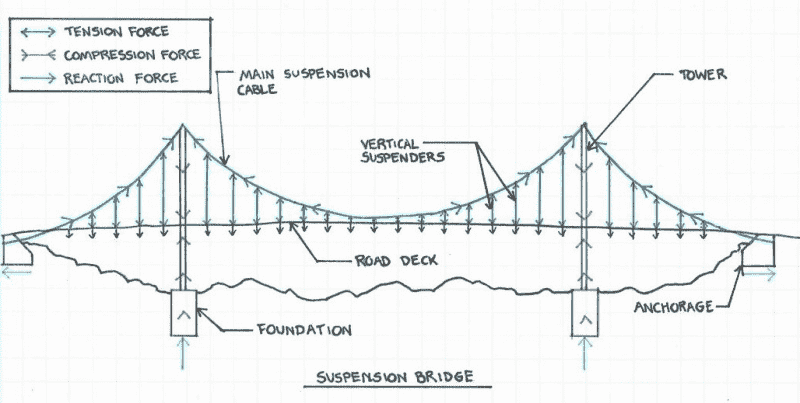 TENSION FORCE
COMPRESSION FORCE
REACTION FORCE
MAIN SUSPENSION
CABLE
TOWER
VERTICAL
SUSPENDERS
ROAD DECK
ANCHORAGE
FOUNDATION
SUSPENSION BRIDGE